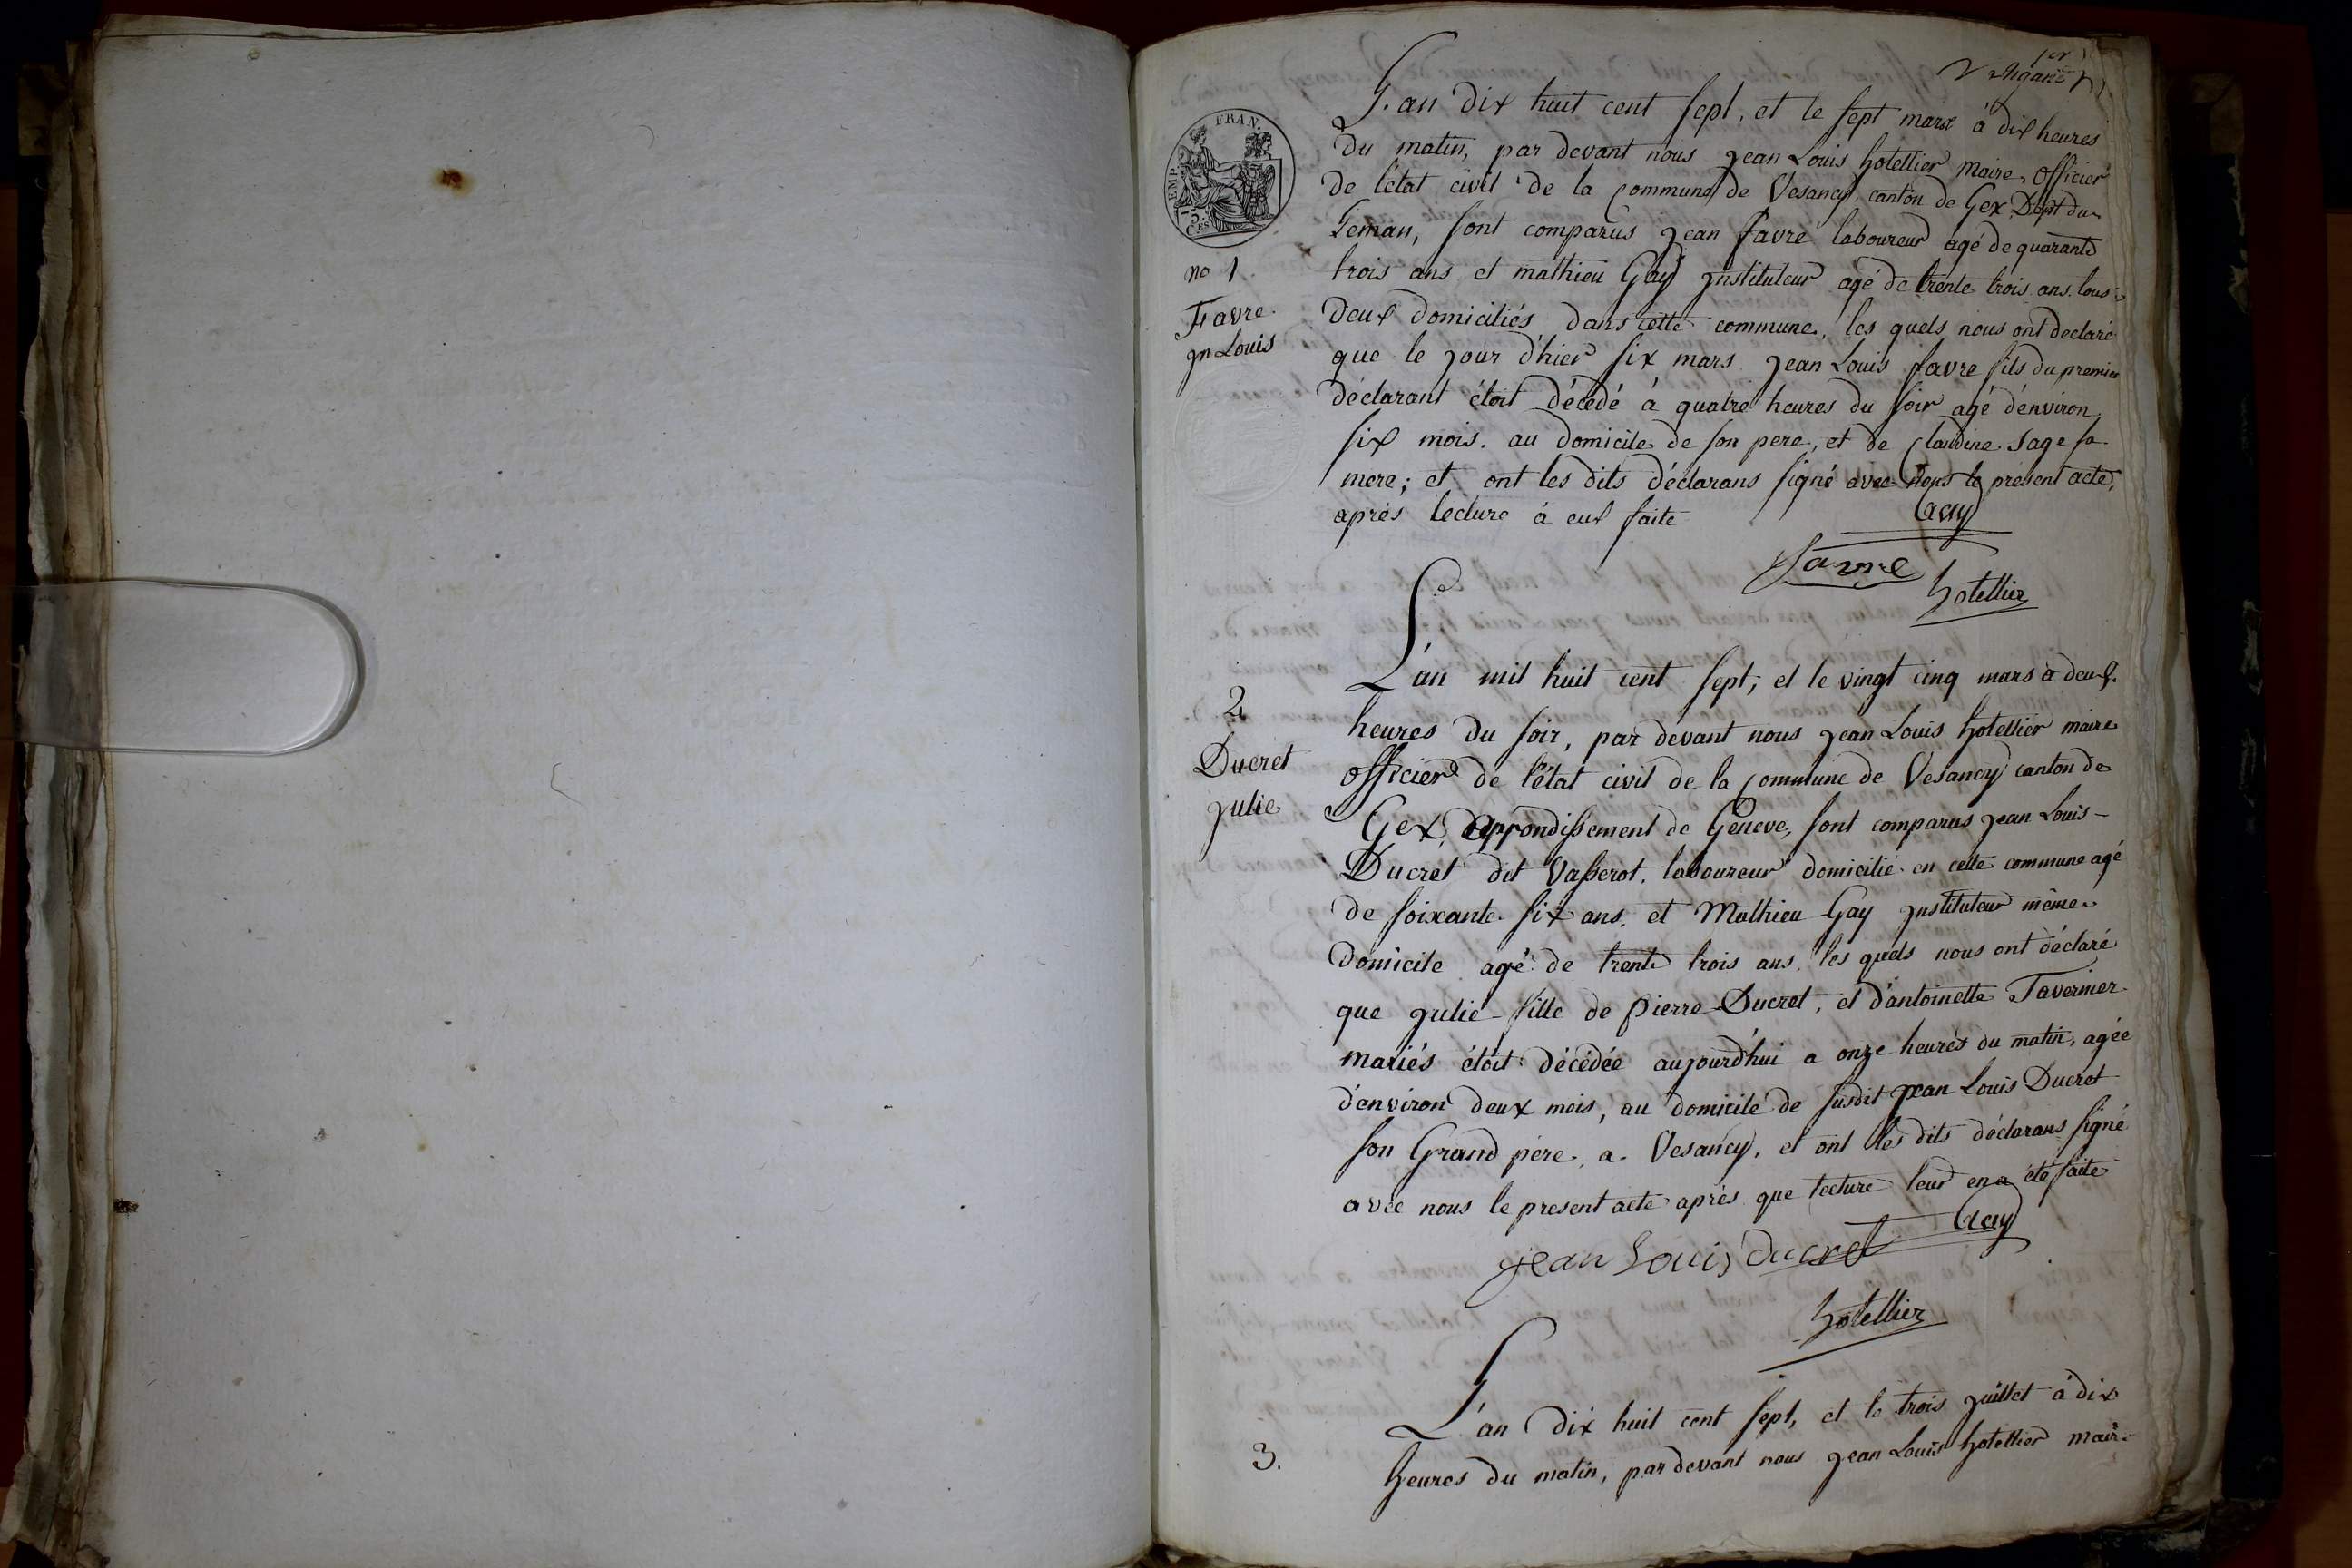 1er
EMP. FRAN.
75 CES
L'an dix huit cent sept, et le sept mars à dix heures
du matin, par devant nous jean Louis hotellier maire officier
de l'état civil de la commune de Vesancy canton de Gex Dept du
Leman, sont comparus jean favre laboureur agé de quarante
no 1
trois ans et mathieu Gay instituteur agé de trente trois ans tous
Favre
deux domiciliés dans cette commune, les quels nous ont declaré
jn Louis
que le jour d'hier six mars jean Louis favre fils du premier
déclarant étoit décédé à quatre heures du soir agé d'environ
six mois. au domicile de son pere, et de Claudine Sage sa
mere; et ont les dits déclarans signé avec nous le présent acte,
après lecture à eux faite
Gay
favre
hotellier
2
L'an mil huit cent sept; et le vingt cinq mars à deux
heures du soir, par devant nous jean Louis hotellier maire
Ducret
officier de l'état civil de la commune de Vesancy canton de
julie
Gex, arrondissement de Geneve, sont comparus jean Louis -
Ducret dit Vasserot, laboureur domicilié en cette commune agé
de soixante six ans. et Mathieu Gay instituteur même
domicile agé de trente trois ans. les quels nous ont déclaré
que julie fille de pierre Ducret, et d'antoinette Tavernier
mariés étoit décédée aujourd'hui a onze heures du matin, agée
d'environ deux mois, au domicile de susdit jean Louis Ducret
son Grand père, a Vesancy, et ont les dits déclarans signé
avec nous le present acte après que lecture leur en a été faite
Gay
jean Louis ducret
hotellier
L'an dix huit cent sept, et le trois juillet à dix
3.
heures du matin, par devant nous jean Louis hotellier maire